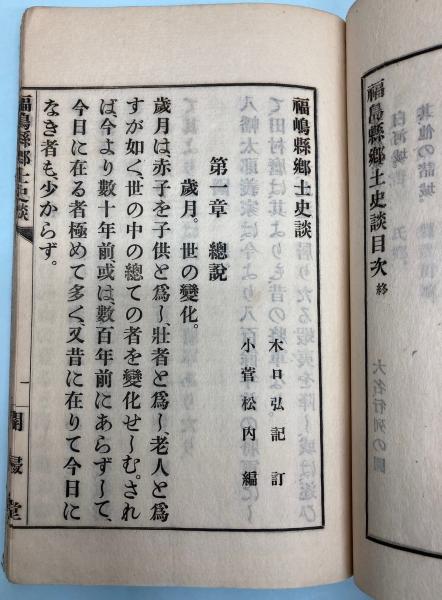 福島縣鄕土史談目次 終
福嶋縣鄕土史談
木口弘記訂
小菅松内編
第一章 總說
歲月。世の變化。
歲月は、赤子を子供と爲し、壯者と爲し、老人と爲
すが如く、世の中の總ての者を變化せしむ。され
ば、今より數十年前、或は、數百年前にあらずして、
今日に在る者極めて多く、又昔に在りて今日に
なき者も、少からず。
福島縣鄕土史談
一